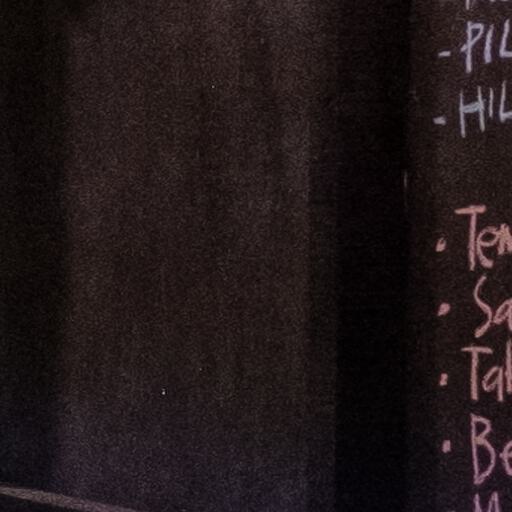 - PIL
- HIL
· Ten
· Sa
· Tal
· Be